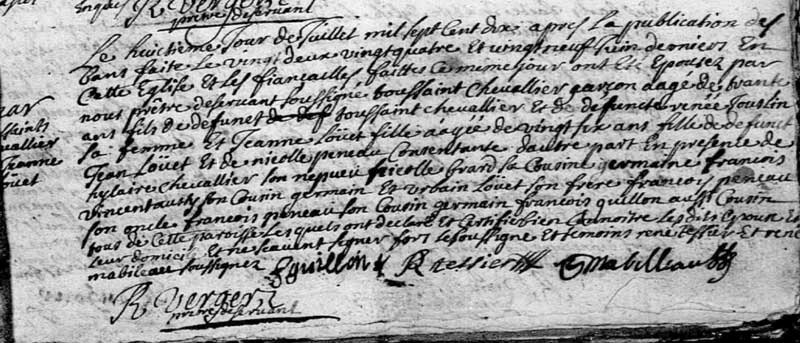 R Verger
prêtre deservant
Le huictieme Jour de Juillet mil sept Cent dix apres La publication des
bans faite Le vingt deux vingt quatre Et vingt neuf Juin derniers En
Cette Eglise Et Les fiançailles faittes Ce meme Jour ont Eté Epousez par
nous prêtre deservant Soussigné toussaint Chevallier garçon aagé de trante
ans fils de defunct toussaint chevallier Et de defuncte renée Jouslin
Sa femme Et Jeanne Löüet fille aagée de vingt six ans fille de defunct
Jean Löüet Et de nicolle peneau Consentante dautre part En presence de
hylaire chevallier Son nepveu grard Sa Cousine germaine françois
vincent Son Cousin germain Et urbain Löüet Son frere françois peneau
Son oncle françois peneau Son Cousin germain françois quillon aussi Cousin
tous de Cette paroisse Lesquels ont declaré Et Certifié bien Connoitre Les dits Epoux Et
Leur domicile Et ne Scavent Signer fors Le Soussigné Et temoins rené tessier Et rené
mabileau Soussignez
mar
toussaints
chevallier
Jeanne
Löüet
f quillon R tessier mabilleau
R Verger
prêtre deservant